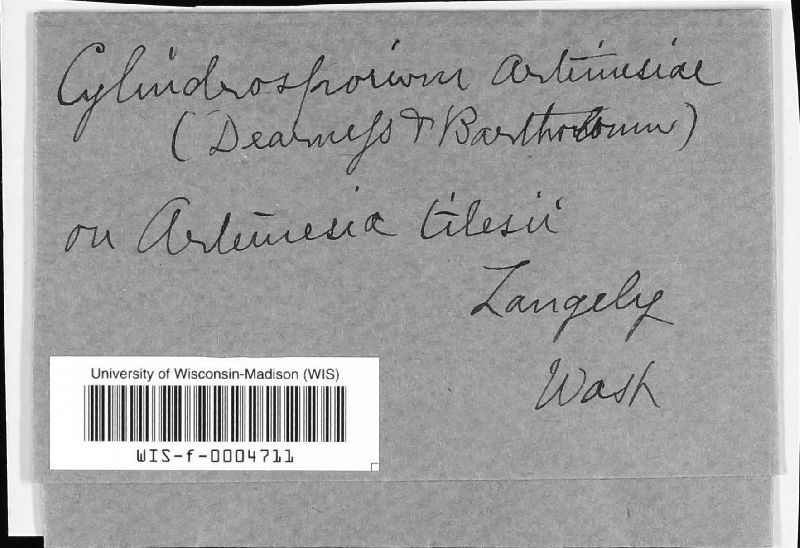 Cylindrosporium Artemesiae
(Dearness & Bartholomew)
on Artemesia tilesii
Langely
Wash
University of Wisconsin-Madison (WIS)
WIS-f-0004711